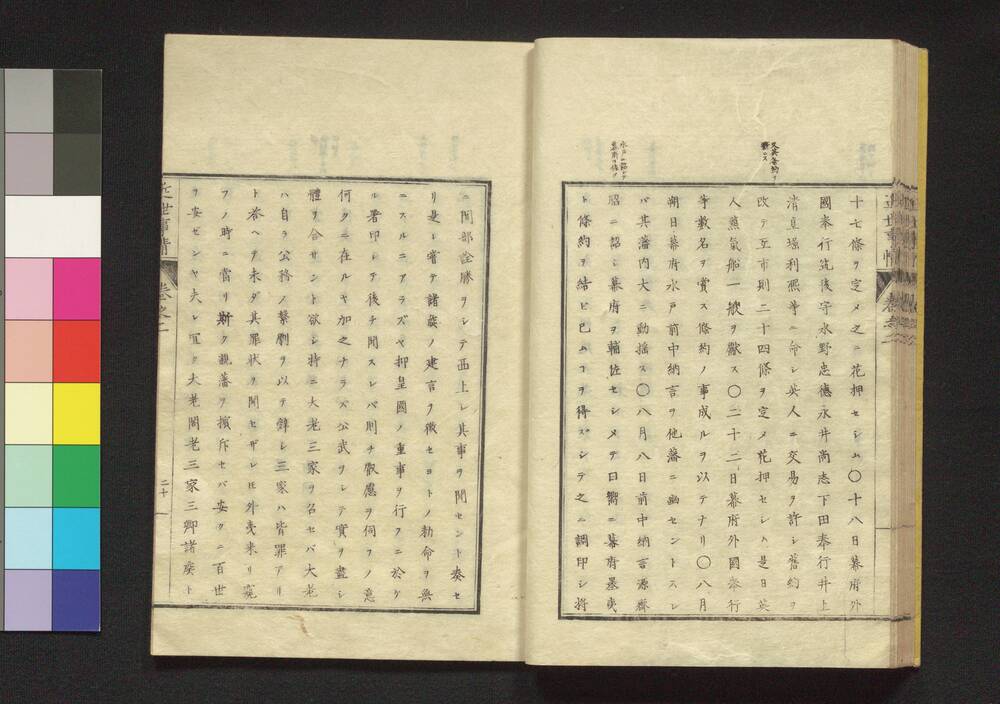 又英条約ヲ
十七條ヲ定メ之ニ花押セシム〇十八日幕府外
國奉行筑後守水野忠德永井尚志下田奉行井上
清直堀利煕等ニ命シ英人ニ交易ヲ許シ舊約ヲ
改テ互市則二十四條ヲ定メ花押セシム是日英
人蒸氣船一艘ヲ獻ス〇二十二日幕府外國奉行
等數名ヲ賞ス條約ノ事成ルヲ以テナリ〇八月
朔日幕府水戸前中納言ヲ他藩ニ幽セントスレ
バ其藩内大ニ動揺ス〇八月八日前中納言源齊
昭ニ詔シ幕府ヲ輔佐セシメテ曰嚮ニ幕府墨夷
ト條約ヲ結ビ已ムヿヲ得ズシテ之ニ調印シ将
ニ間部詮勝ヲシテ西上シ其事ヲ聞セント奏セ
リ是ト嘗テ諸矦ノ建言ヲ徴セヨトノ勅命ヲ無
ニスルニアラズヤ抑皇國ノ重事ヲ行フニ於ケ
ル署印シテ後チ聞スレバ則チ叡慮ヲ伺フノ意
何クニ在ルヤ加之ナラズ公武ヲシテ實ヲ盡シ
體ヲ合サント欲シ持ニ大老三家ヲ召セバ大老
ハ自ラ公務ノ繋劇ヲ以テ辞シ三家ハ皆罪アリ
ト荅ヘテ未ダ其罪状ヲ聞セザレ圧外夷来リ寇
フノ時ニ當リ斯ク親藩ヲ擯斥セバ安クニ百世
ヲ安ゼンヤ夫レ宜ク大老閣老三家三卿諸矦ト
近世事情
巻之二
二十一